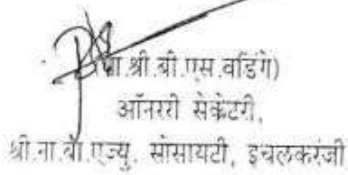 (प्रा.श्री.बी.एस.वडिंगे)
ऑनररी सेक्रेटरी,
श्री.ना.बा.एज्यु. सोसायटी, इचलकरंजी